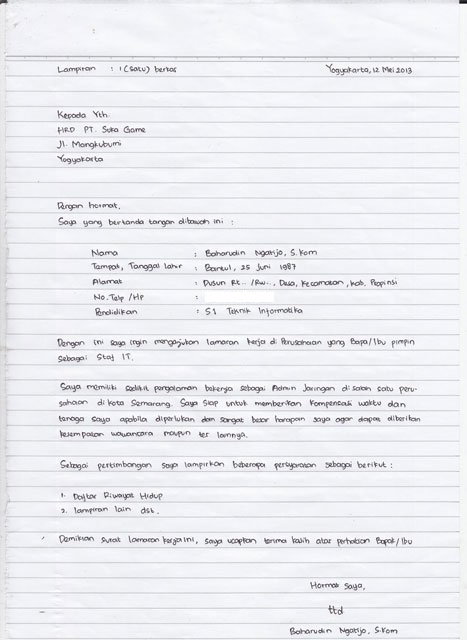 Lampiran : 1 (satu) berkas
Yogyakarta, 12 Mei 2013
Kepada Yth.
HRD PT. Suka Game
Jl. Mangkubumi
Yogyakarta
Dengan hormat,
Saya yang bertanda tangan dibawah ini :
Nama : Baharudin Ngatijo, S.Kom
Tempat, Tanggal Lahir : Bantul, 25 Juni 1987
Alamat : Dusun Rt.. /Rw.., Desa, Kecamatan, Kab, Propinsi
No. Telp /HP :
Pendidikan : S1 Teknik Informatika
Dengan ini saya ingin mengajukan lamaran kerja di Perusahaan yang Bapa/Ibu pimpin
sebagai Staf IT.
Saya memiliki sedikit pengalaman bekerja sebagai Admin Jaringan di salah satu peru-
sahaan di kota Semarang. Saya siap untuk memberikan kompensasi waktu dan
tenaga saya apabila diperlukan dan sangat besar harapan saya agar dapat diberikan
kesempatan wawancara maupun tes lainnya.
Sebagai pertimbangan saya lampirkan beberapa persyaratan sebagai berikut :
1. Daftar Riwayat Hidup
2. lampiran lain dst.
Demikian surat lamaran kerja ini, saya ucapkan terima kasih atas perhatian Bapak/Ibu
Hormat Saya,
ttd
Baharudin Ngatijo, S.Kom